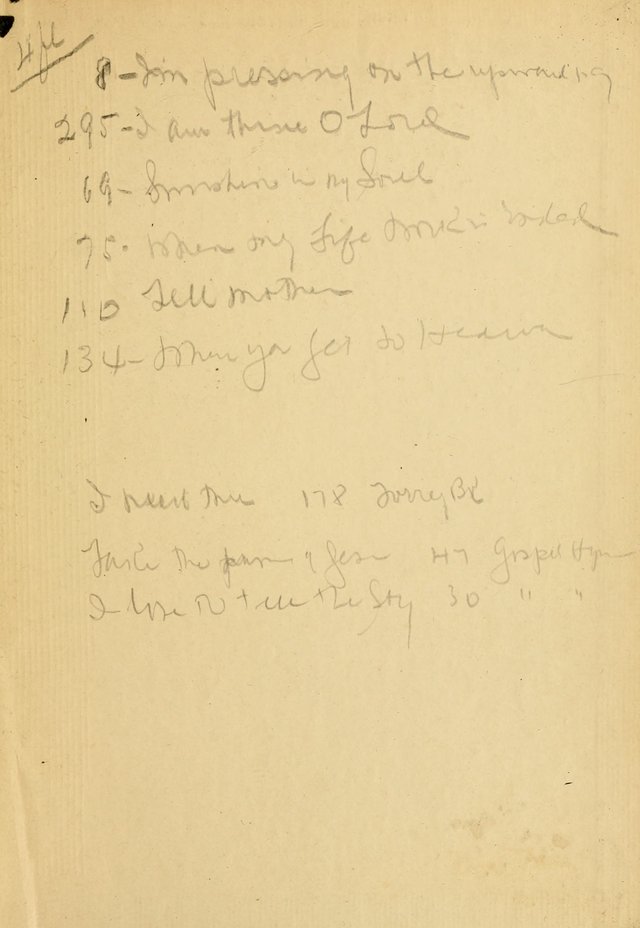 8 - I'm pressing on the upward
295 - I am thine O Lord
69 - Sunshine in my Soul
75 - When my Life Work is Ended
110 Tell mother
134 - When you get to Heaven
I need thee 178 Torrey Bk
Take the name of Jesus 47 Gospel Hymn
I love to tell the Sty 30 " "